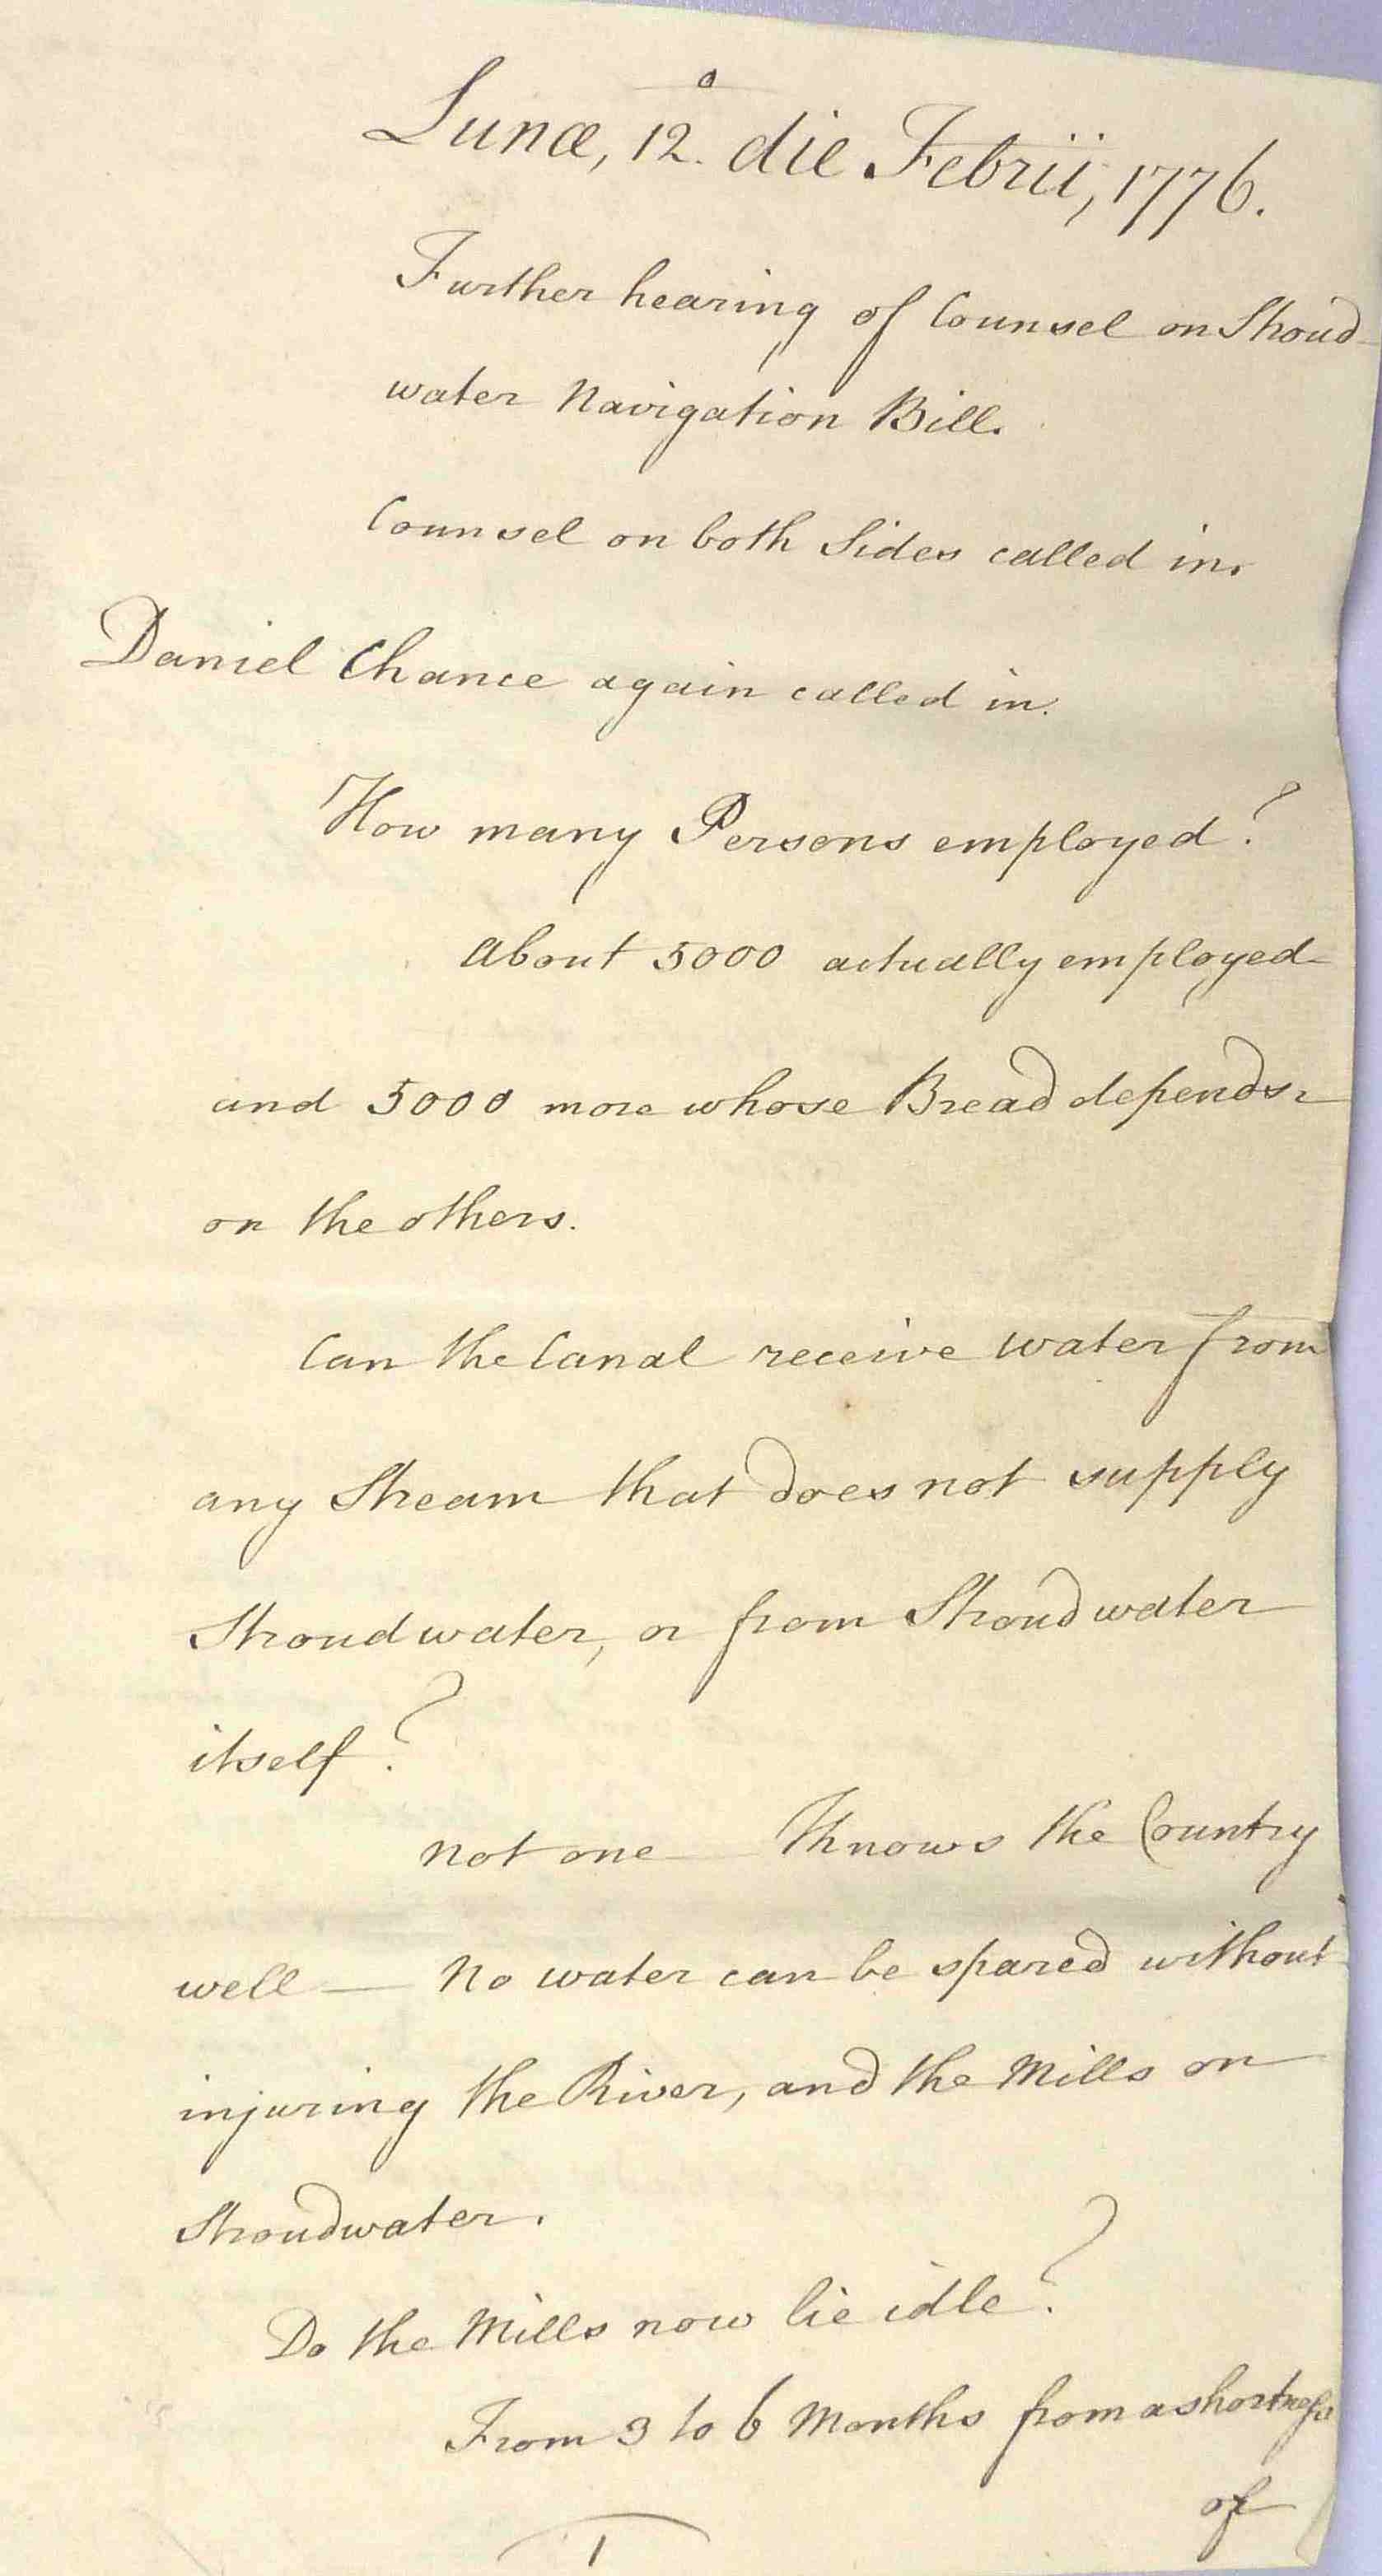 Lunæ, 12.° die Febrii, 1776.
Further hearing of Counsel on Stroud-
water Navigation Bill.
Counsel on both Sides called in.
Daniel Chance again called in.
How many Persons employed?
About 5000 actually employed
and 5000 more whose Bread depends
on the others.
Can the Canal receive water from
any Stream that does not supply
Stroudwater, or from Stroudwater
itself?
Not one — Knows the Country
well — No water can be spared without
injuring the River, and the Mills on
Stroudwater.
Do the Mills now lie idle?
From 3 to 6 Months from a shortness
of
1